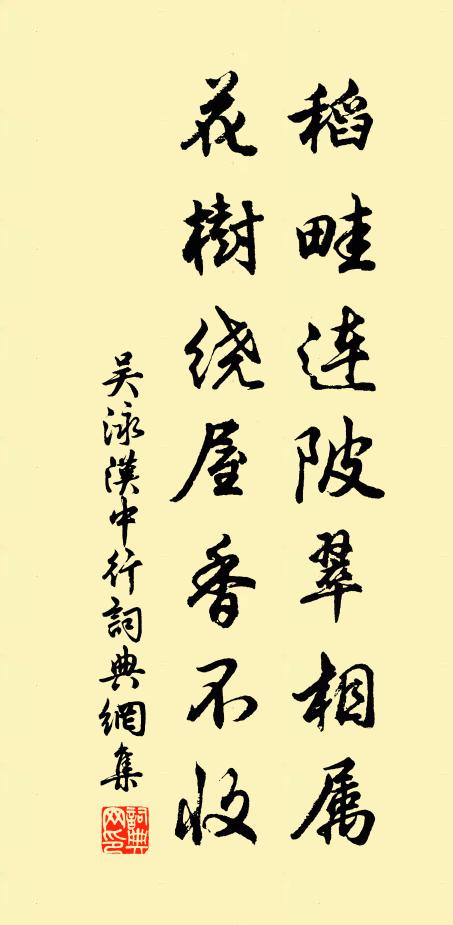 稻畦连陂翠相属
花樹绕屋香不收
吴泳漢中行詞典網集
詞典网印